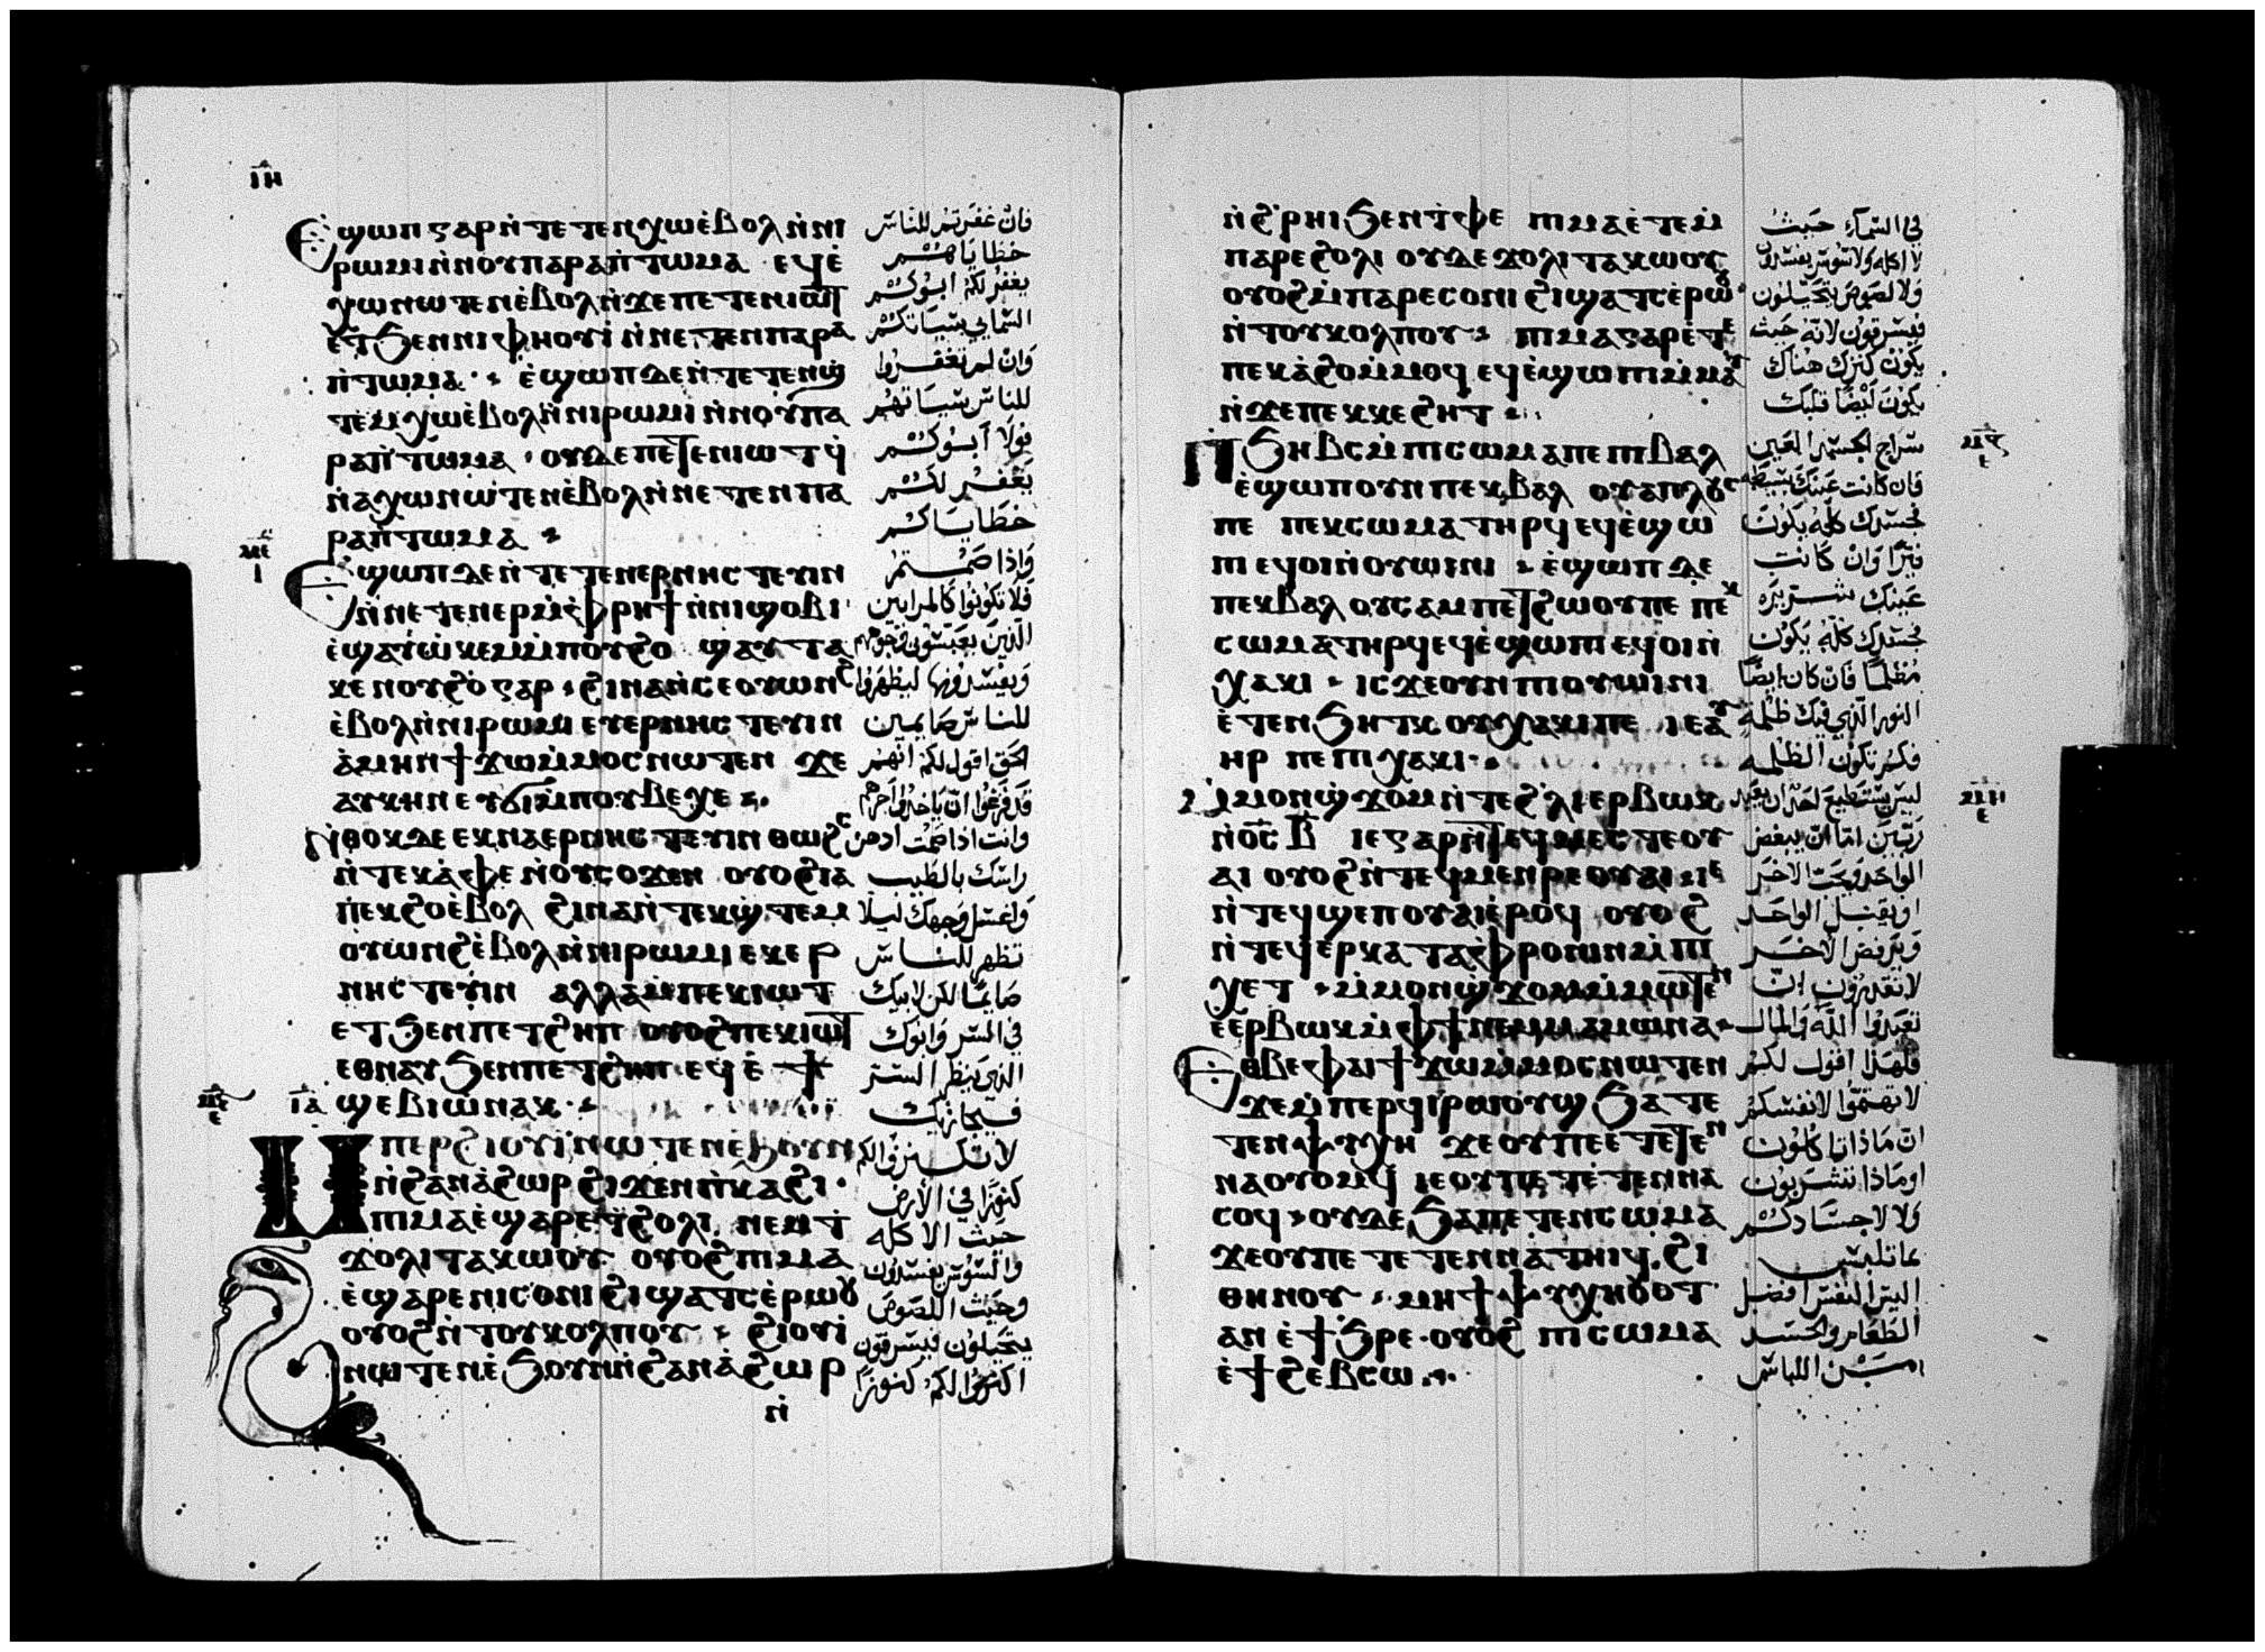 ⲓ̅ⲏ̅
Ⲉϣⲱⲡ ⲅⲁⲣ ⲛ̀ⲧⲉⲧⲉⲛⲭⲱ ⲉ̀ⲃⲟⲗ ⲛ̀ⲛⲓ
ⲣⲱⲙⲓ ⲛ̀ⲛⲟⲩⲡⲁⲣⲁⲡⲧⲱⲙⲁ ⲉϥⲉ̀
ⲭⲱ ⲛⲱⲧⲉⲛ ⲉ̀ⲃⲟⲗ ⲛ̀ϫⲉⲡⲉⲧⲉⲛⲓⲱⲧ
ⲉⲧϧⲉⲛⲛⲓⲫⲏⲟⲩⲓ̀ ⲛ̀ⲛⲉⲧⲉⲛⲡⲁⲣⲁ
ⲡ̀ⲧⲱⲙⲁ · ⲉ̀ϣⲱⲡ ⲇⲉ ⲛ̀ⲧⲉⲧⲉⲛϣ̀
ⲧⲉⲙⲭⲱ ⲉ̀ⲃⲟⲗ ⲛ̀ⲛⲓⲣⲱⲙⲓ ⲛ̀ⲛⲟⲩⲡⲁ
ⲣⲁⲡ̀ⲧⲱⲙⲁ · ⲟⲩⲇⲉ ⲡⲉⲧⲉⲛⲓⲱⲧ ϥ̀
ⲛⲁⲭⲱ ⲛⲱⲧⲉⲛ ⲉ̀ⲃⲟⲗ ⲛ̀ⲛⲉⲧⲉⲛⲡⲁ
ⲣⲁⲡ̀ⲧⲱⲙⲁ
ⲙ̅ⲉ̅
ⲓ
Ⲉϣⲱⲡ ⲇⲉ ⲛ̀ⲧⲉⲧⲉⲛⲉⲣⲛⲏⲥⲧⲉⲩⲓⲛ
ⲛ̀ⲛⲉⲧⲉⲛⲉⲣⲙ̀ⲫ̀ⲣⲏϯ ⲛ̀ⲛⲓϣⲟⲃⲓ
ⲉ̀ϣⲁⲩⲱ̀ⲕⲉⲙ ⲙ̀ⲡⲟⲩϩⲟ ϣⲁⲩⲧⲁ
ⲕⲉ ⲛⲟⲩϩⲟ ⲅⲁⲣ · ϩⲓⲛⲁ ⲛ̀ⲥⲉⲟⲩⲱⲛϩ
ⲉ̀ⲃⲟⲗ ⲛ̀ⲛⲓⲣⲱⲙⲓ ⲉⲩⲉⲣⲛⲏⲥⲧⲉⲩⲓⲛ
ⲁ̀ⲙⲏⲛ ϯϫⲱ ⲙ̀ⲙⲟⲥ ⲛⲱⲧⲉⲛ ϫⲉ
ⲁⲩⲕⲏⲛ ⲉⲩϭⲓ ⲙ̀ⲡⲟⲩⲃⲉⲭⲉ
Ⲛ̀ⲑⲟⲕ ⲇⲉ ⲉⲕⲛⲁⲉⲣⲛⲏⲥⲧⲉⲩⲓⲛ ⲑⲱϩⲥ
ⲛ̀ⲧⲉⲕⲁ̀ⲫⲉ ⲛ̀ⲟⲩⲥⲟϫⲉⲛ ⲟⲩⲟϩ ⲓⲁ
ⲡⲉⲕϩⲟ ⲉ̀ⲃⲟⲗ ϩⲓⲛⲁ ⲛ̀ⲧⲉⲕϣ̀ⲧⲉⲙ
ⲟⲩⲱⲛϩ ⲉ̀ⲃⲟⲗ ⲛ̀ⲛⲓⲣⲱⲙⲓ ⲉⲕⲉⲣ
ⲛⲏⲥⲧⲉⲩⲓⲛ ⲁⲗⲗⲁ ⲙ̀ⲡⲉⲕⲓⲱⲧ
ⲉⲧϧⲉⲛⲡⲉⲧϩⲏⲡ ⲟⲩⲟϩ ⲡⲉⲕⲓⲱⲧ
ⲉⲑⲛⲁⲩ ϧⲉⲛⲡⲉⲧϩⲏⲡ ⲉϥⲉ̀ϯ
ⲓ̅ⲁ̅ ϣⲉⲃⲓⲱ̀ ⲛⲁⲕ
ⲙ̅ⲋ̅
ⲉ
Ⲙⲡⲉⲣϩⲓⲟⲩⲓ̀ ⲛⲱⲧⲉⲛ ⲉ̀ϧⲟⲩⲛ
ⲛ̀ϩⲁⲛⲁ̀ϩⲱⲣ ϩⲓϫⲉⲛ ⲡ̀ⲕⲁϩⲓ ·
ⲡⲓⲙⲁ ⲉ̀ϣⲁⲣⲉ ϯϩⲟⲗⲓ ⲛⲉⲙ ϯ
ϫⲟⲗⲓ ⲧⲁⲕⲱⲟⲩ ⲟⲩⲟϩ ⲡⲓⲙⲁ
ⲉ̀ϣⲁⲣⲉ ⲛⲓⲥⲟⲛⲓ ϩⲓϣⲁⲧⲥ ⲉ̀ⲣⲱⲟⲩ
ⲟⲩⲟϩ ⲛ̀ⲧⲟⲩⲕⲟⲗⲡⲟⲩ · ϩⲓⲟⲩⲓ̀
ⲛⲱⲧⲉⲛ ⲉ̀ϧⲟⲩⲛ ⲛ̀ϩⲁⲛⲁ̀ϩⲱⲣ
ⲛ̀
فان غفرتم للناس
خطاياهم
يغفر لكم ابوكم
السمايي سياتكم
وان لم تغفروا
للناس سياتهم
فولا ابوكم
يغفر لكم
خطاياكم
واذا صمتم
فلا تكونوا كالمرايين
الذين يعبسون وجوههم
ويفسدونها ليظهروا
للناس صايمين
الحق اقول لكم انهم
قد فرغوا ان ياخذوا اجرهم
وانت اذا صمت ادهن
راسك بالطيب
واغسل وجهك ليلا
تظهر للناس
صايما لكن لابيك
في السر وابوك
الذي ينظر السر
فيجازيك
لا تكنزوا لكم
كنوزا في الارض
حيث الاكله
والسوس يفسدون
وحيث اللصوص
يتحيلون فيسرقون
اكنزوا لكم كنوزا
ⲛ̀ϩ̀ⲣⲏⲓ ϧⲉⲛ ⲧ̀ⲫⲉ ⲡⲓⲙⲁ ⲉ̀ⲧⲉⲙ
ⲡⲁⲣⲉ ϩⲟⲗⲓ ⲟⲩⲇⲉ ϫⲟⲗⲓ ⲧⲁⲕⲱⲟⲩ
ⲟⲩⲟϩ ⲙ̀ⲡⲁⲣⲉ ⲥⲟⲛⲓ ϩⲓϣⲁⲧⲥ ⲉ̀ⲣⲱⲟⲩ
ⲛ̀ⲧⲟⲩⲕⲟⲗⲡⲟⲩ · ⲡⲓⲙⲁ ⲅⲁⲣ ⲉ̀ⲧⲉ
ⲡⲉⲕⲁ̀ϩⲟ ⲙ̀ⲙⲟϥ ⲉϥⲉ̀ϣⲱⲡⲓ ⲙ̀ⲙⲁⲩ
ⲛ̀ϫⲉ ⲡⲉⲕⲕⲉϩⲏⲧ
ⲙ̅ⲍ̅
ⲉ
Ⲡϧⲏⲃⲥ ⲙ̀ⲡⲓⲥⲱⲙⲁ ⲡⲉ ⲡⲓⲃⲁⲗ
ⲉ̀ϣⲱⲡ ⲟⲩⲛ ⲡⲉⲕⲃⲁⲗ ⲟⲩⲁⲡⲗⲟⲩⲥ
ⲡⲉ ⲡⲉⲕⲥⲱⲙⲁ ⲧⲏⲣϥ ⲉϥⲉ̀ϣⲱ
ⲡⲓ ⲉϥⲟⲓ ⲛ̀ⲟⲩⲱⲓⲛⲓ · ⲉ̀ϣⲱⲡ ⲇⲉ
ⲡⲉⲕⲃⲁⲗ ⲟⲩⲥⲁⲙⲡⲉⲧϩⲱⲟⲩ ⲡⲉ ⲡⲉⲕ
ⲥⲱⲙⲁ ⲧⲏⲣϥ ⲉϥⲉ̀ϣⲱⲡⲓ ⲉϥⲟⲓ ⲛ̀
ⲭⲁⲕⲓ · ⲓⲥϫⲉ ⲟⲩⲛ ⲡⲓⲟⲩⲱⲓⲛⲓ
ⲉ̀ⲧⲉⲛϧⲏⲧⲕ ⲟⲩⲭⲁⲕⲓ ⲡⲉ ⲓⲉ ⲁⲩ
ⲏⲣ ⲡⲉ ⲡⲓⲭⲁⲕⲓ
ⲙ̅ⲏ̅
ⲉ
Ⲙⲙⲟⲛ ϣ̀ϫⲟⲙ ⲛ̀ⲧⲉ ϩ̀ⲗⲓ ⲉⲣⲃⲱⲕ
ⲛ̀ⲟ̅ⲥ̅ ⲃ̅ ⲓⲉ ⲅⲁⲣ ⲛ̀ⲧⲉϥⲙⲉⲥⲧⲉ ⲟⲩ
ⲁⲓ ⲟⲩⲟϩ ⲛ̀ⲧⲉϥⲙⲉⲛⲣⲉ ⲟⲩⲁⲓ ⲓⲉ
ⲛ̀ⲧⲉϥϣⲉⲡ ⲟⲩⲁⲓ ⲉ̀ⲣⲟϥ ⲟⲩⲟϩ
ⲛ̀ⲧⲉϥⲉⲣⲕⲁⲧⲁⲫ̀ⲣⲟⲛⲓⲛ ⲙ̀ⲡⲓ
ⲭⲉⲧ · ⲙ̀ⲙⲟⲛ ϣ̀ϫⲟⲙ ⲙ̀ⲙⲱⲧⲉⲛ
ⲉ̀ⲉⲣⲃⲱⲕ ⲙ̀ⲫϯ ⲛⲉⲙ ⲙⲁⲙⲱⲛⲁ
Ⲉⲑⲃⲉ ⲫⲁⲓ ϯϫⲱ ⲙ̀ⲙⲟⲥ ⲛⲱⲧⲉⲛ
ϫⲉ ⲙ̀ⲡⲉⲣϥⲓⲣⲱⲟⲩϣ ϧⲁ ⲧⲉ
ⲧⲉⲛⲯⲩⲭⲏ ϫⲉ ⲟⲩ ⲡⲉ ⲉ̀ⲧⲉⲧⲉⲛ
ⲛⲁⲟⲩⲟⲙϥ ⲓⲉ ⲟⲩ ⲡⲉ ⲧⲉⲧⲉⲛⲛⲁ
ⲥⲟϥ · ⲟⲩⲇⲉ ϧⲁ ⲡⲉⲧⲉⲛⲥⲱⲙⲁ
ϫⲉ ⲟⲩ ⲡⲉ ⲧⲉⲧⲉⲛⲛⲁⲧⲏⲓϥ ϩⲓ
ⲑⲏⲛⲟⲩ · ⲙⲏ ϯⲯⲩⲭⲏ ⲟⲩⲟⲧ
ⲁⲛ ⲉ̀ϯϧⲣⲉ · ⲟⲩⲟϩ ⲡⲓⲥⲱⲙⲁ
ⲉ̀ϯϩⲉⲃⲥⲱ
في السماء حيث
لا اكله ولا سوس يفسدون
ولا لصوص يتحيلون
فيسرقون لانه حيث
يكون كنزك هناك
يكون ايضا قلبك
سراج الجسم العين
فان كانت عينك بسيطه
فجسدك كله يكون
نيرا وان كانت
عينك شريره
فجسدك كله يكون
مظلما فان كان ايضا
النور الذي فيك ظلمة
فكم تكون الظلمه
ليس يستطيع احد ان يعبد
ربين اما ان يبغض
الواحد ويحب الاخر
او يقبل الواحد
ويرفض الاخر
لا تقدرون ان
تعبدوا الله والمال
فلهذا اقول لكم
لا تهتموا لانفسكم
ان ماذا تاكلون
او ماذا تشربون
ولا لاجسادكم
بما تلبس
اليس النفس افضل
الطعام والجسد
من اللباس